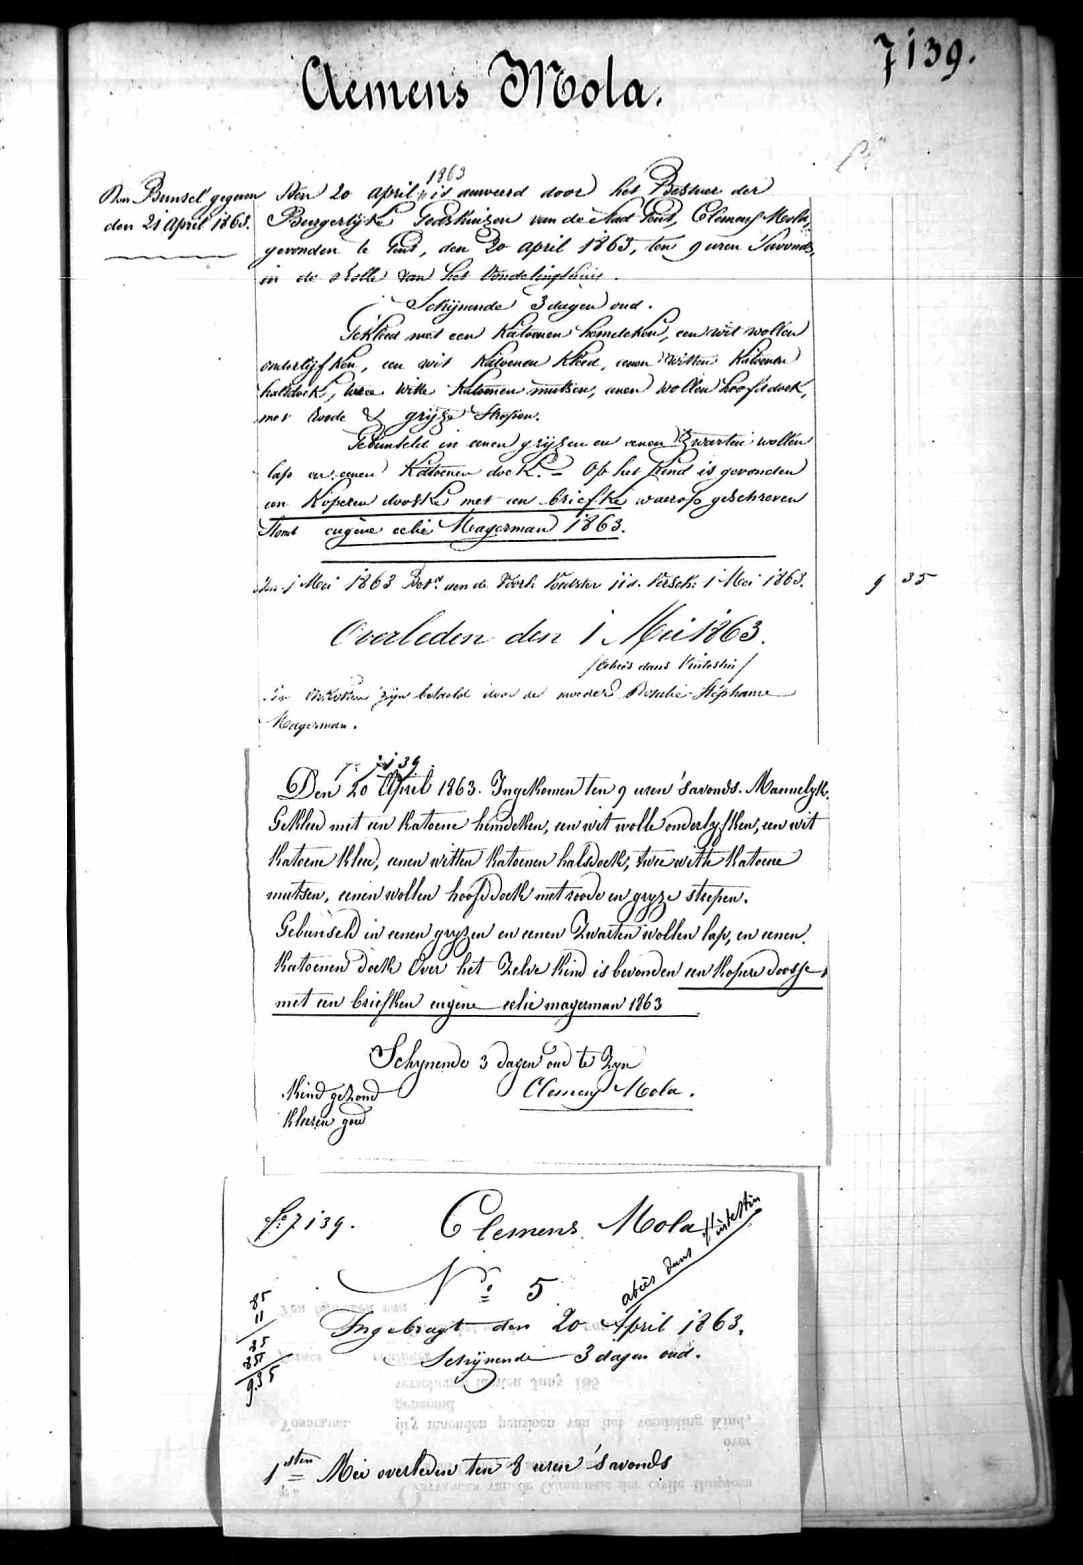 7139.
Clemens Mola.
Den Bunsel gegeven
den 21 April 1863.
1863
Den 20 April is aenveerd door het Bestuer der
Burgerlijke Godshuizen van de Stad Gent, Clemens Mola,
gevonden te Gent, den 20 April 1863, ten 9 uren 'savonds,
in de Rolle van het Vondelinghuis.
Schijnende 3 dagen oud.
Gekleed met een Katoenen hemdeken, een wit wollen
onderlijfken, een wit Katoenen Kleed, eenen witten Katoenen
halsdoek, twee witte Katoenen mutsen, eenen wollen hoofddoek,
met roode & grijze Strepen.
Gebunseld in eenen grijzen en eenen Zwarten wollen
lap en eenen Katoenen doek. = Op het Kind is gevonden
een Koperen dooske met een briefke waerop geschreven
Stont eugène eelie Magerman 1863.
Den 1 Mei 1863 Bet. aen de Voedster 1 Mei 1863.
9 35
Overleden den 1 Mei 1863.
/abcès dans l'intestin/
De zijn betaeld door de moeder Rosalie Stéphanie
Magerman.
7139
Den 20 April 1863. Ingekomen ten 9 uren 'savonds. Mannelyk.
Gekleed met een Katoene hemdeken, een wit wolle onderlyfken, een wit
Katoene Kleed, eenen witten Katoenen halsdoek, twee witte Katoene
mutsen, eenen wollen hoofddoek met roode en gryze strepen.
Gebunseld in eenen gryzen en eenen Zwarten wollen lap, en eenen
Katoenen doek Over het Zelve Kind is bevonden een Kopere doosje
met een briefken eugène eelie magerman 1863
Schynende 3 dagen oud te Zyn
Kind gezond
Clemens Mola.
Kleeren goed
f° 7139.
Clemens Mola
abcès dans l'intestin
N° 5
Ingebragt den 20 April 1863.
Schijnende 3 dagen oud.
85
11
85
85
9.35
1sten Mei overleden ten 8 uren 'savonds